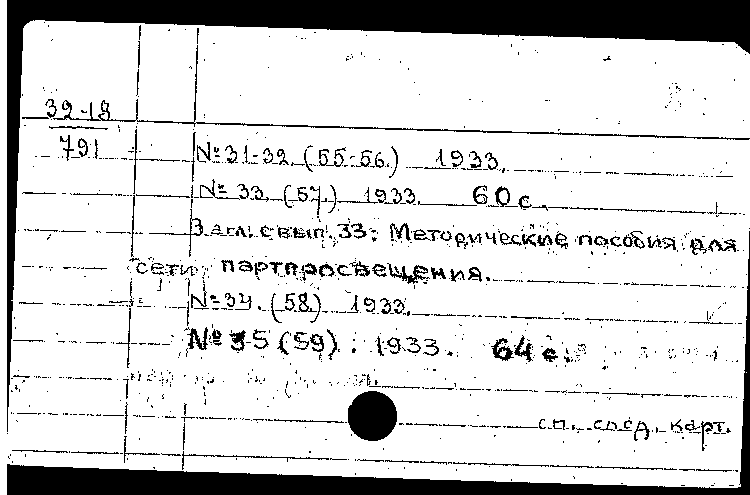 32-18
791
№31-32. (55-56.) 1933.
№ 33. (57.) 1933. 60 с.
Загл. с вып. 33: Методические пособия для
сети партпросвещения.
№34. (58.) 1933.
№ 35 (59). 1933. 64 с.
см. след. карт.